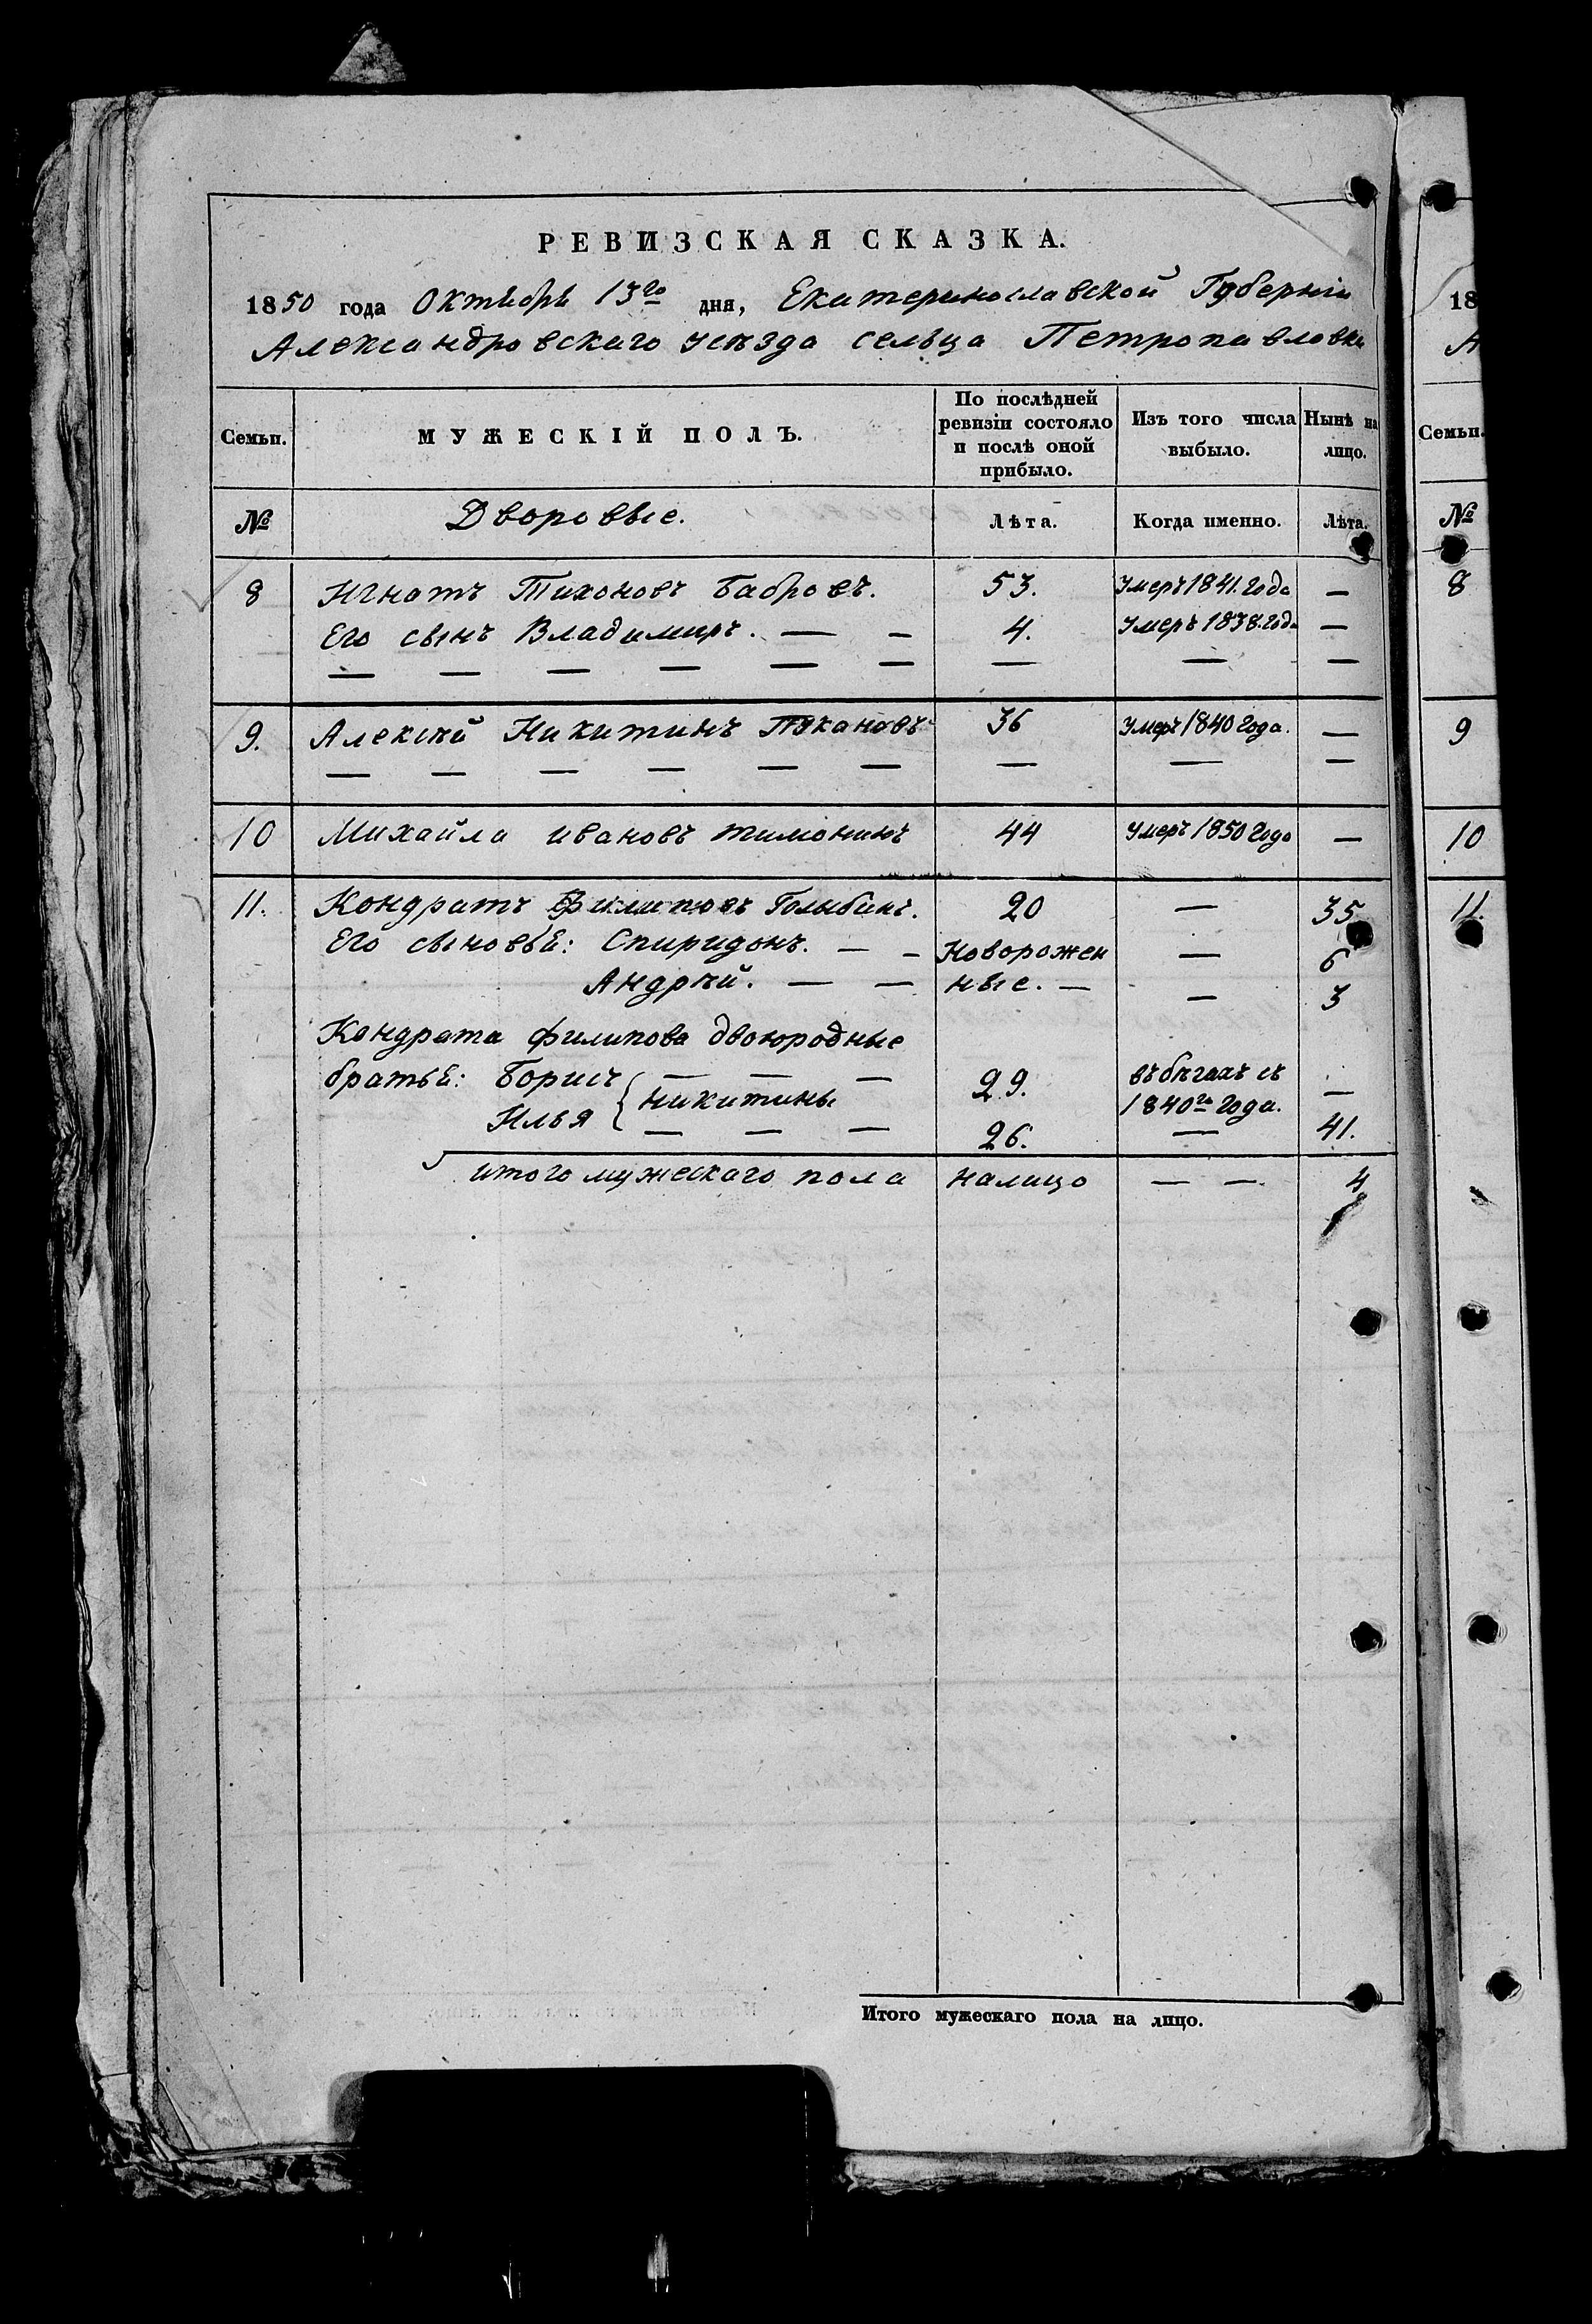 РЕВИЗСКАЯ СКАЗКА.
1850 года Октября 13го дня, Екатеринославской Губерніи
Александровскаго уѣзда сельца Петропавловки
Семьи. МУЖЕСКІЙ ПОЛЪ. По послѣдней ревизіи состояло и послѣ оной прибыло. Изъ того числа выбыло. Нынѣ на лицо.
№ Дворовые. Лѣта. Когда именно. Лѣта.
8 Игнатъ Тихоновъ Бабровъ. 53. Умеръ 1841. года —
Его сынъ Владимиръ. — — 4. Умеръ 1838. года —
— — — — — — — — —
9. Алексѣй Никитинъ 36 Умеръ 1840 года. —
— — — — — — — — —
10 Михайла ивановъ тимонинъ 44 Умеръ 1850 года —
11. Кондратъ Филиповъ Голыбинъ. 20 — 35
Его сыновья: Спиридонъ. — — Новорожен — 6
Андрѣй. — — ные. — — 3
Кондрата филипова двоюродные
братья: Борисъ — — — 29. въ бѣгахъ съ —
никитины 1840го года.
Илья — — — 26. — 41.
итого мужескаго пола налицо — — 4
Итого мужескаго пола на лицо.
18
А
Семьи.
№
8
9
10
11.